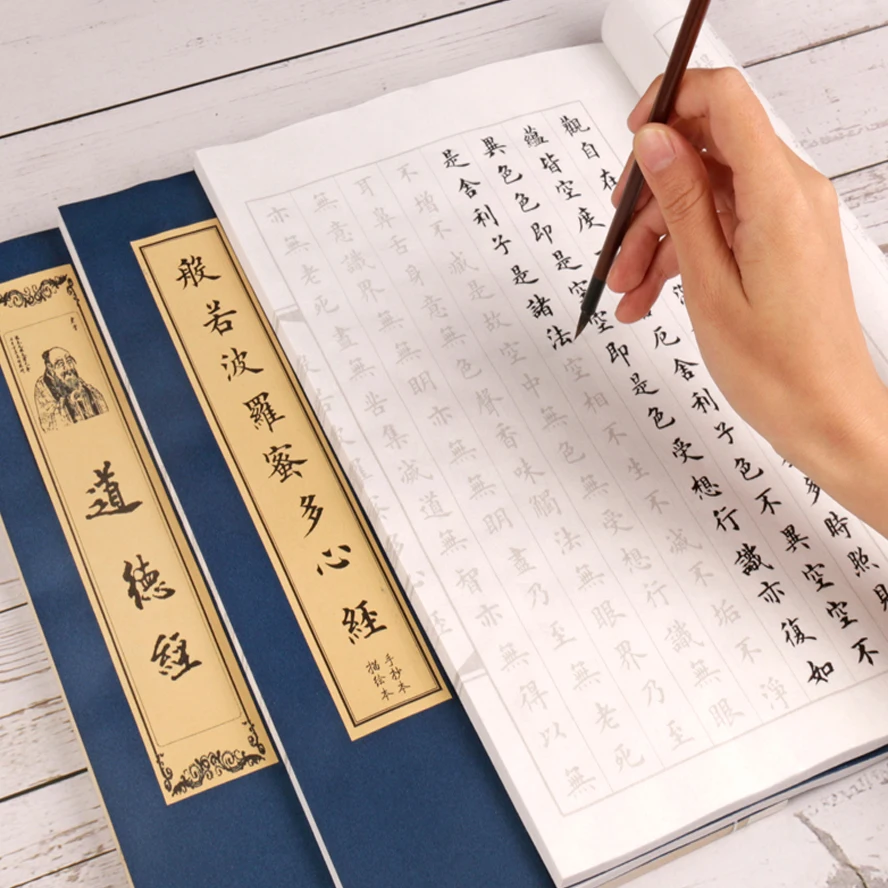 觀自在 多時照見
蘊皆空度 厄舍利子色不異空空不
異色色即是空空即是色受想行識亦復如
是舍利子是諸法空相不生不滅不垢不淨
不增不減是故空中無色無受想行識無眼
耳鼻舌身意無色聲香味觸法無眼界乃至
無意識界無無明亦無無明盡乃至無老死
亦無老死盡無苦集滅道無智亦無得以無
般若波羅蜜多心經
手抄本
描绘本
道德經